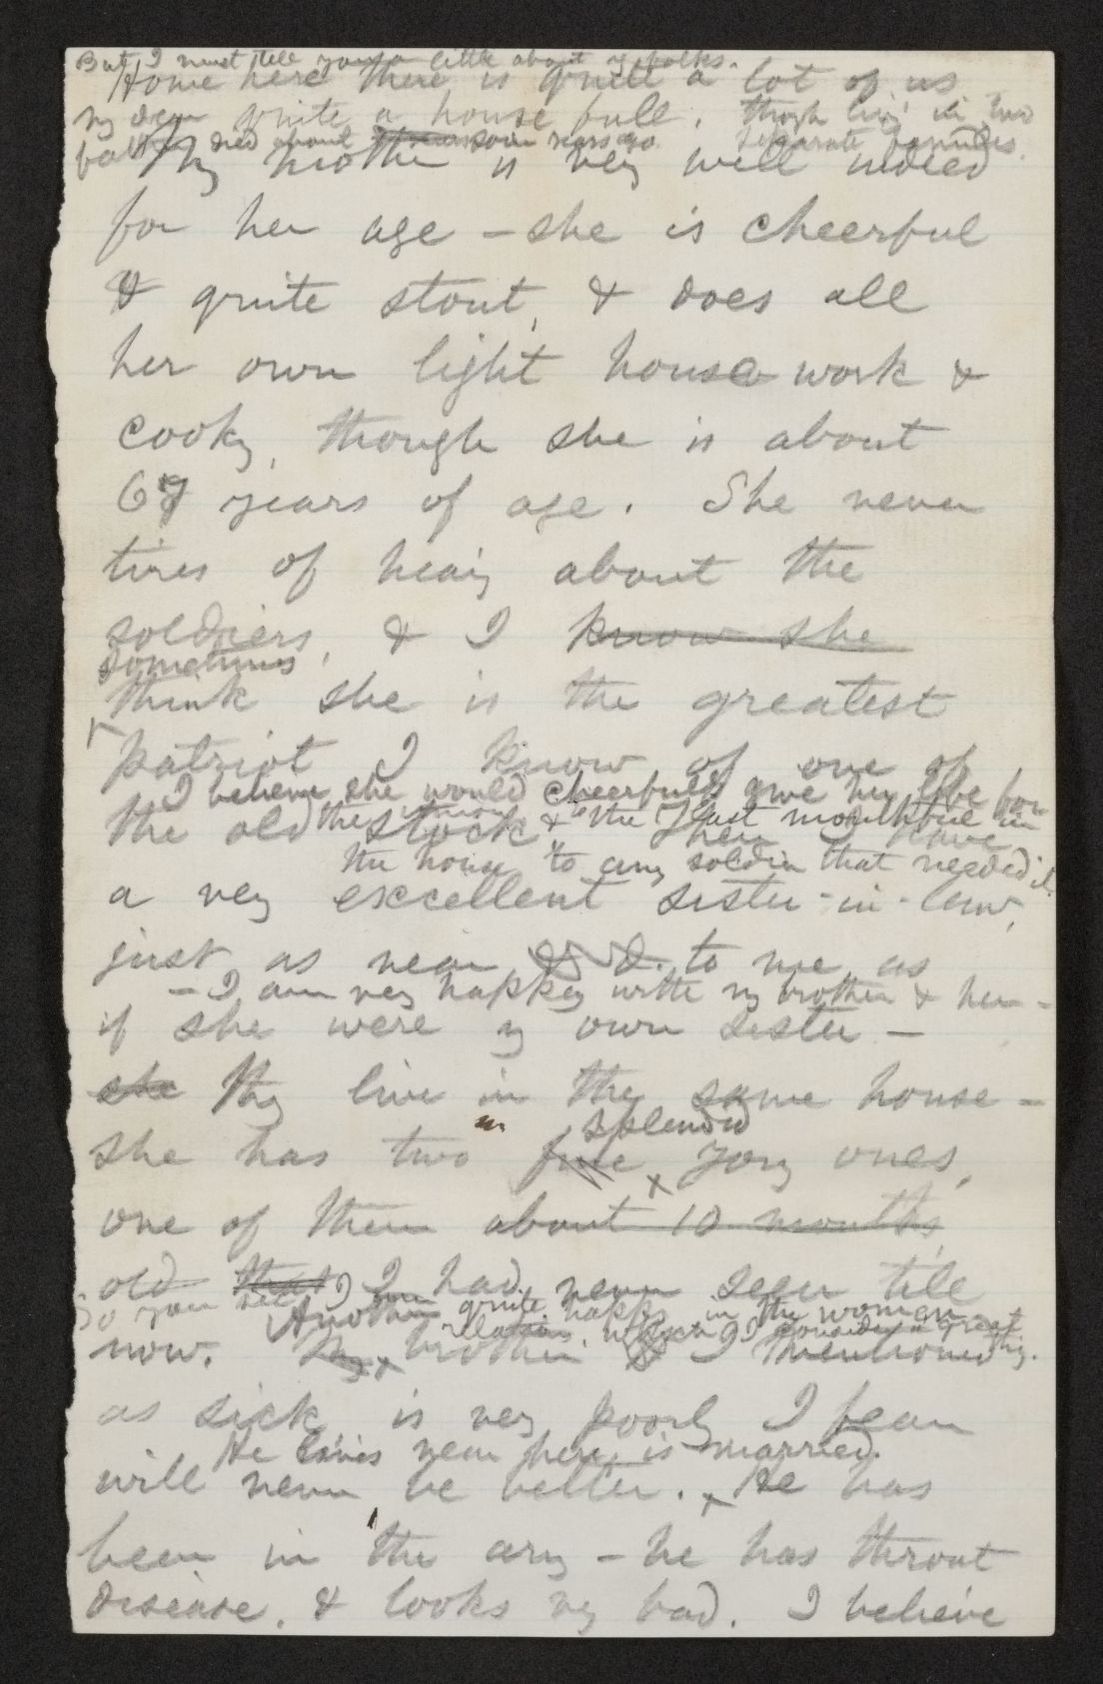 But I must tell you a little about my folks.
Home here there is quite a lot of us
my dear quite a house full, though livi' in two
father died about some years ago. separate families.
My mother is very well indeed
for her age – she is cheerful
& quite stout, & does all
her own light house work &
cookg, though she is about
67 years of age. She never
tires of hearg about the
soldiers, & I know she
sometimes
think she is the greatest
patriot I know of one of
I believe she would cheerfully give her life for
the union & the last mouthful in
the old stock – Then I have
the house to any soldier that needed it.
a very excellent sister-in-law,
just as near to me as
– I am very happy with my brother & her –
if she were my own sister –
she they live in the same house –
splendid
she has two fine yong ones,
one of them about 10 months
old that I had never seen till
So you see I am quite happy in the women
relations, which I consider a great thing.
Another
now. My brother I mentioned
as sick is very poorly I fear
He lives near here, is married.
will never be better. He has
been in the army – he has throat
disease, & looks vy bad. I believe